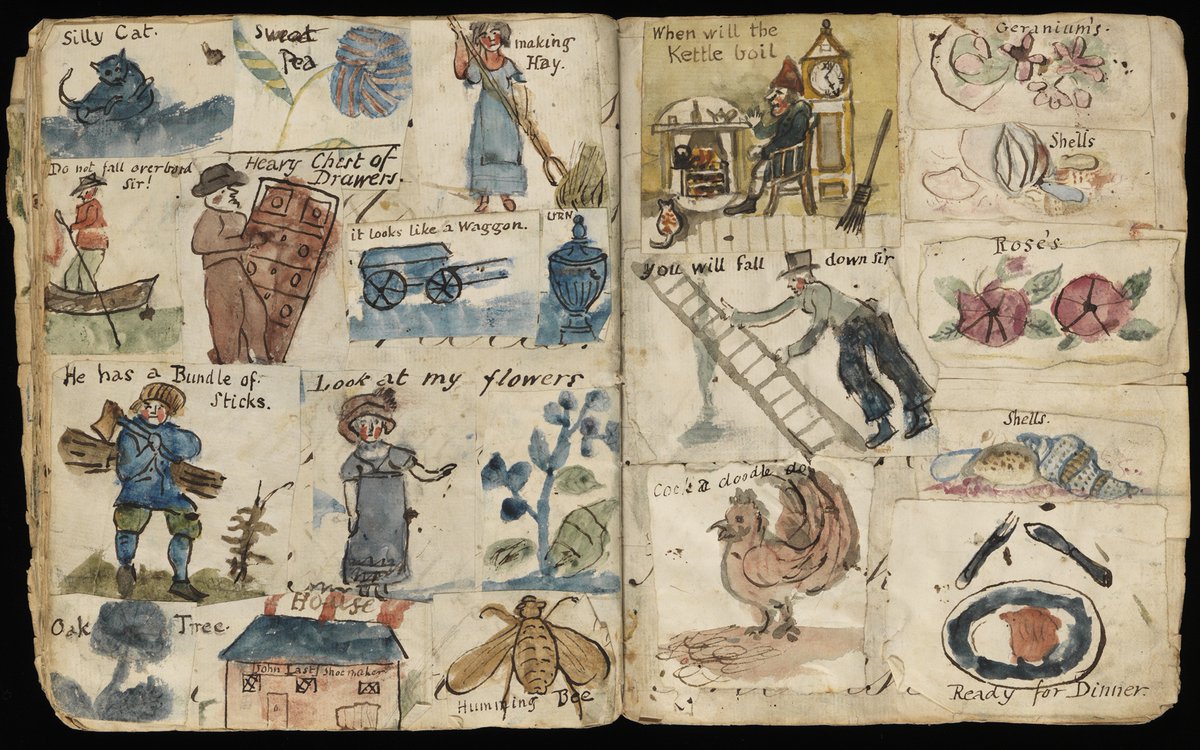 Silly Cat.
Sweat
Pea
making
Hay.
Do not fall overbord
Sir!
Heavy Chest of
Drawers
it looks like a Waggon.
URN
He has a Bundle of
Sticks.
Look at my flowers
Oak Tree.
House
John Last Shoemaker
Humming Bee
When will the
Kettle boil
Geranium's.
Shells
You will fall down sir
Rose's
Shells.
Cock a doodle do
Ready for Dinner.